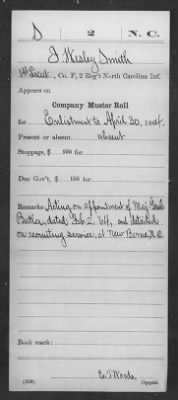 D 2 N.C.
J Wesley Smith
1st Lieut., Co. F, 2 Reg't North Carolina Inf.
Appears on
Company Muster Roll
for Enlistment to April 30, 1864.
Present or absent absent
Stoppage, $ 100 for
Due Gov't, $ 100 for
Remarks: Acting on appointment of Maj Genl
Butler, dated Feb. 2 '64, and detailed
on recruiting service, at New Berne N.C
Book mark:
E. P. Woods
Copyist.